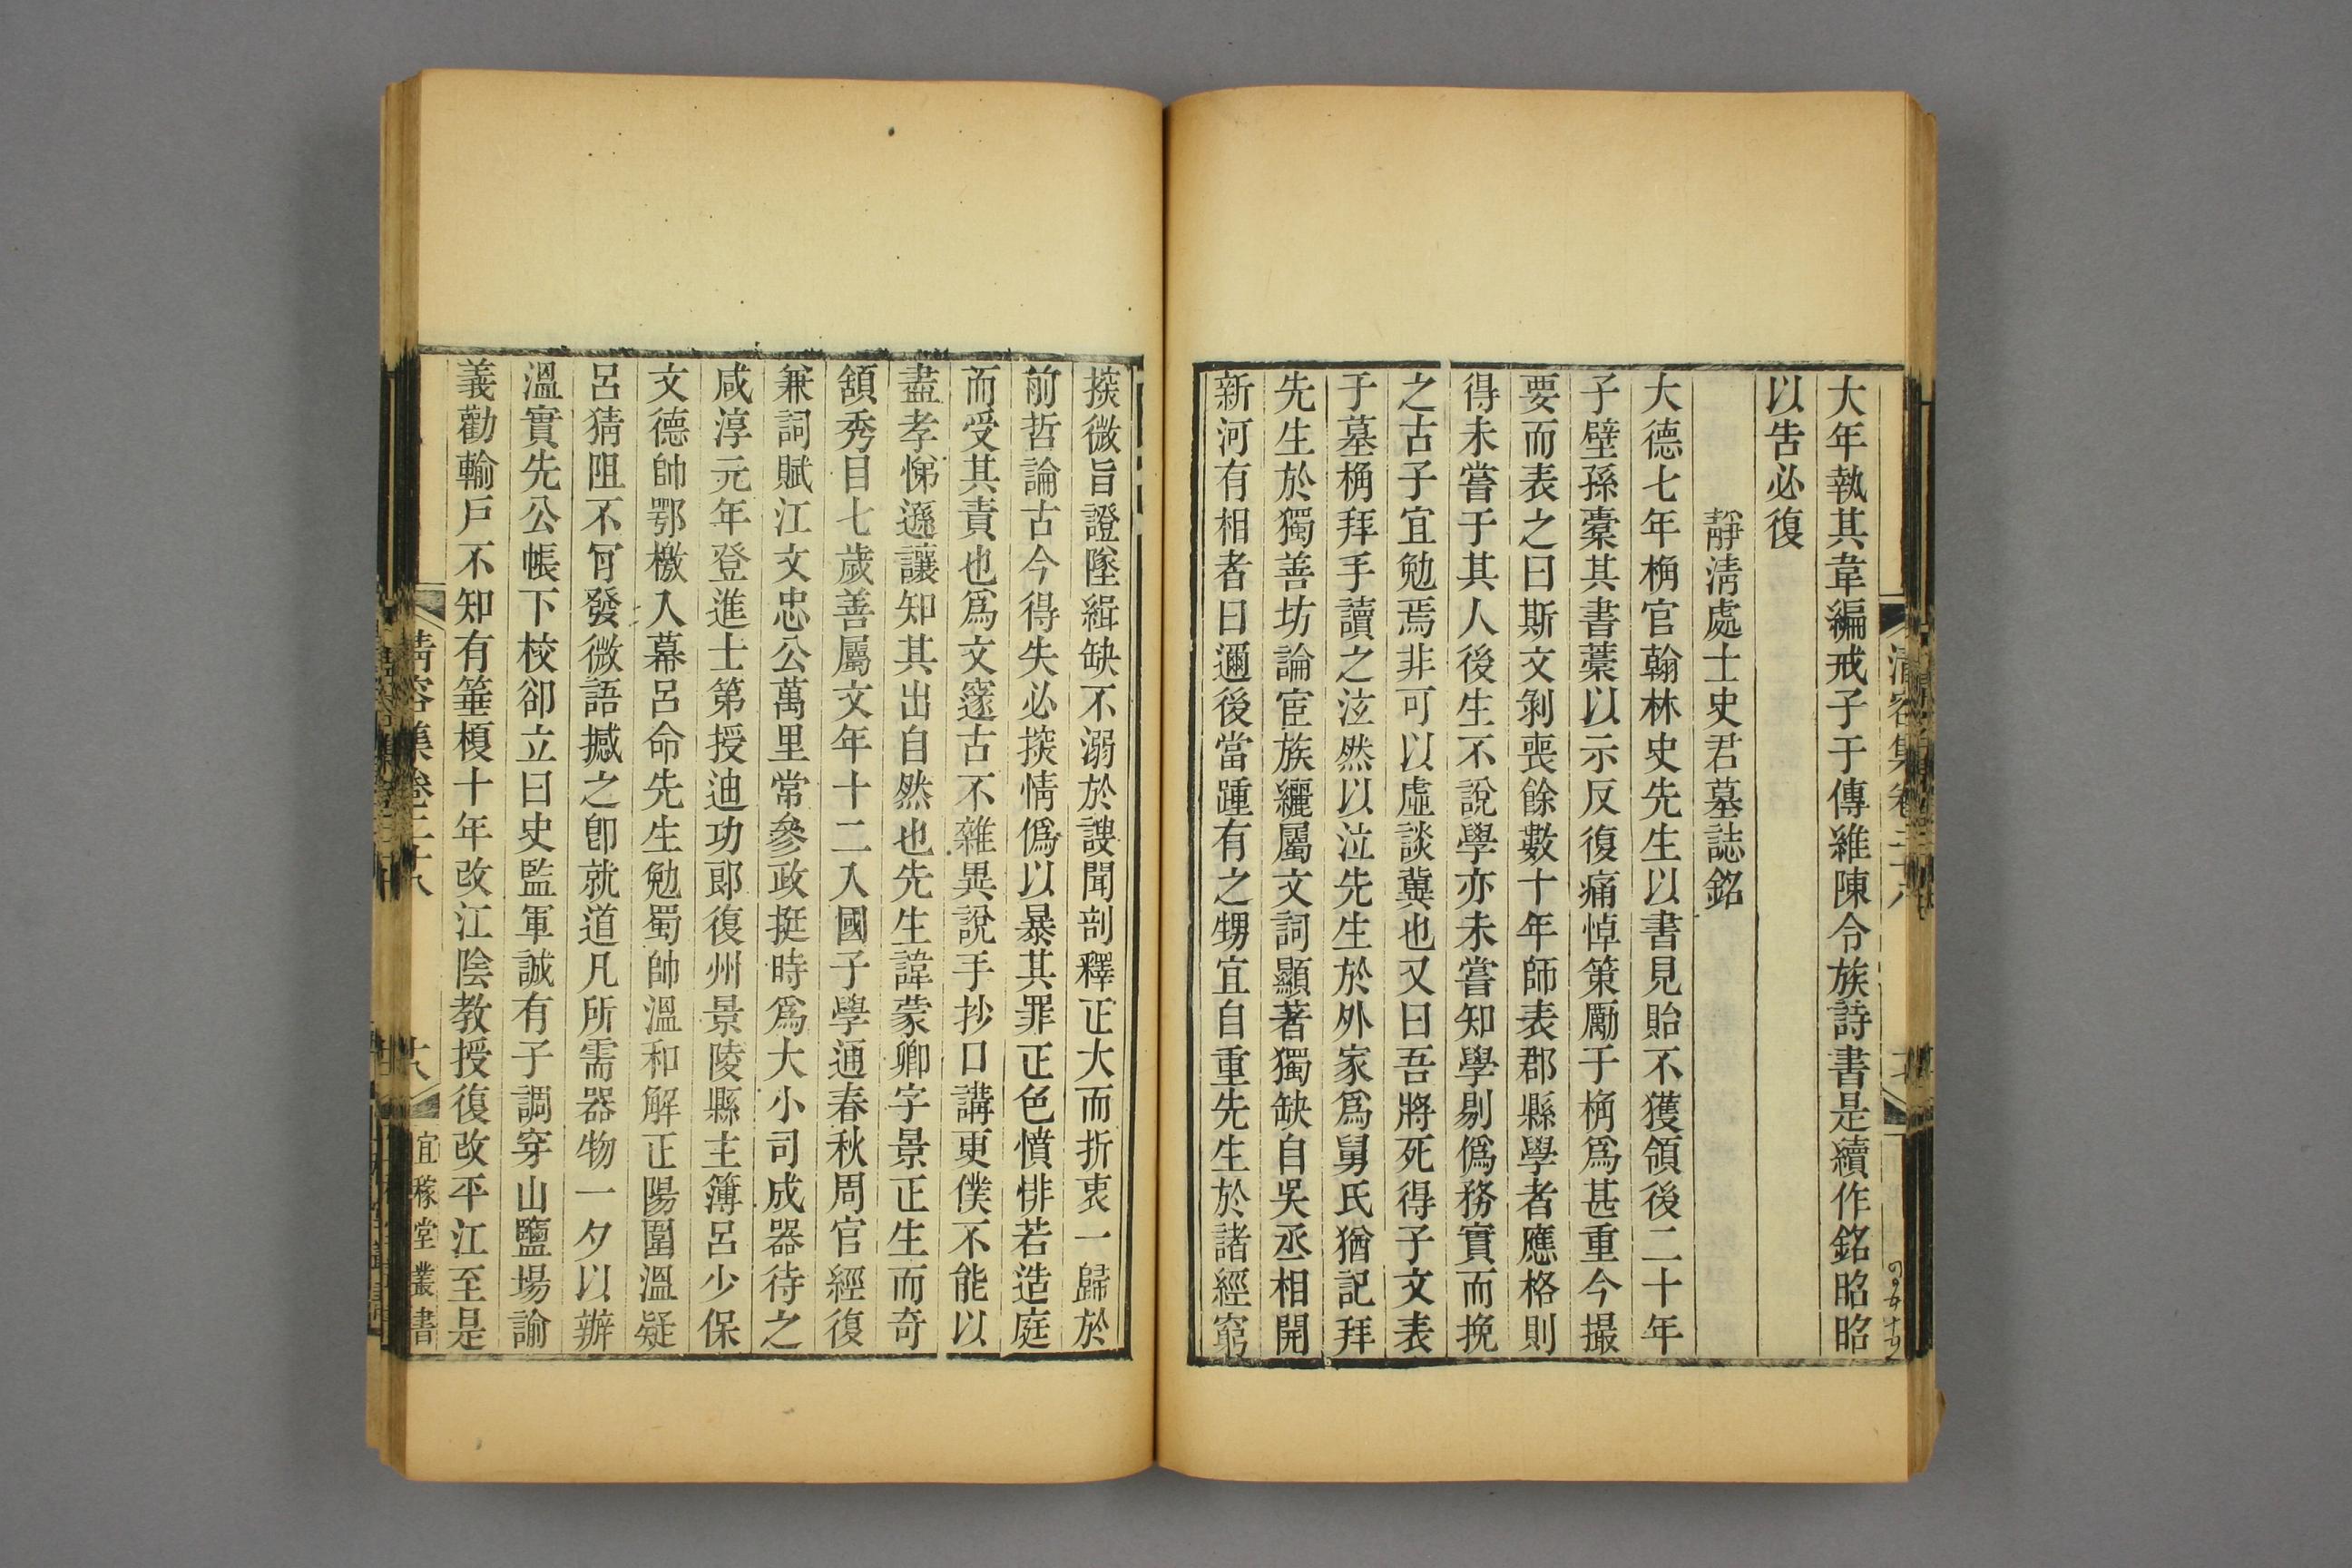 大年執其韋編戒子于傳維陳令族詩書是續作銘昭昭
以告必復
靜淸處士史君墓誌銘
大德七年桷官翰林史先生以書見貽不獲領後二十年
子壁孫橐其書藁以示反復痛悼策勵于桷爲甚重今撮
要而表之曰斯文剝喪餘數十年師表郡縣學者應格則
得未嘗于其人後生不說學亦未嘗知學剔僞務實而挽
之古子宜勉焉非可以虛談冀也又曰吾將死得子文表
于墓桷拜手讀之泫然以泣先生於外家爲舅氏猶記拜
先生於獨善坊論宦族纚屬文詞顯著獨缺自吳丞相開
新河有相者曰邇後當踵有之甥宜自重先生於諸經窮
探微旨證墜緝缺不溺於謏聞剖釋正大而折衷一歸於
前哲論古今得失必探情僞以暴其罪正色憤悱若造庭
而受其責也爲文邃古不雜異說手抄口講更僕不能以
盡孝悌遜讓知其出自然也先生諱蒙卿字景正生而奇
頟秀目七歲善屬文年十二入國子學通春秋周官經復
兼詞賦江文忠公萬里常參政挺時爲大小司成器待之
咸淳元年登進士第授迪功郎復州景陵縣主簿呂少保
文德帥鄂檄入幕呂命先生勉蜀帥溫和解正陽圍溫疑
呂猜阻不肎發微語撼之卽就道凡所需器物一夕以辦
溫實先公帳下校卻立曰史監軍誠有子調穿山鹽場諭
義勸輸戶不知有箠榎十年改江陰教授復改平江至是
清容集卷二十八
大
宜稼堂叢書